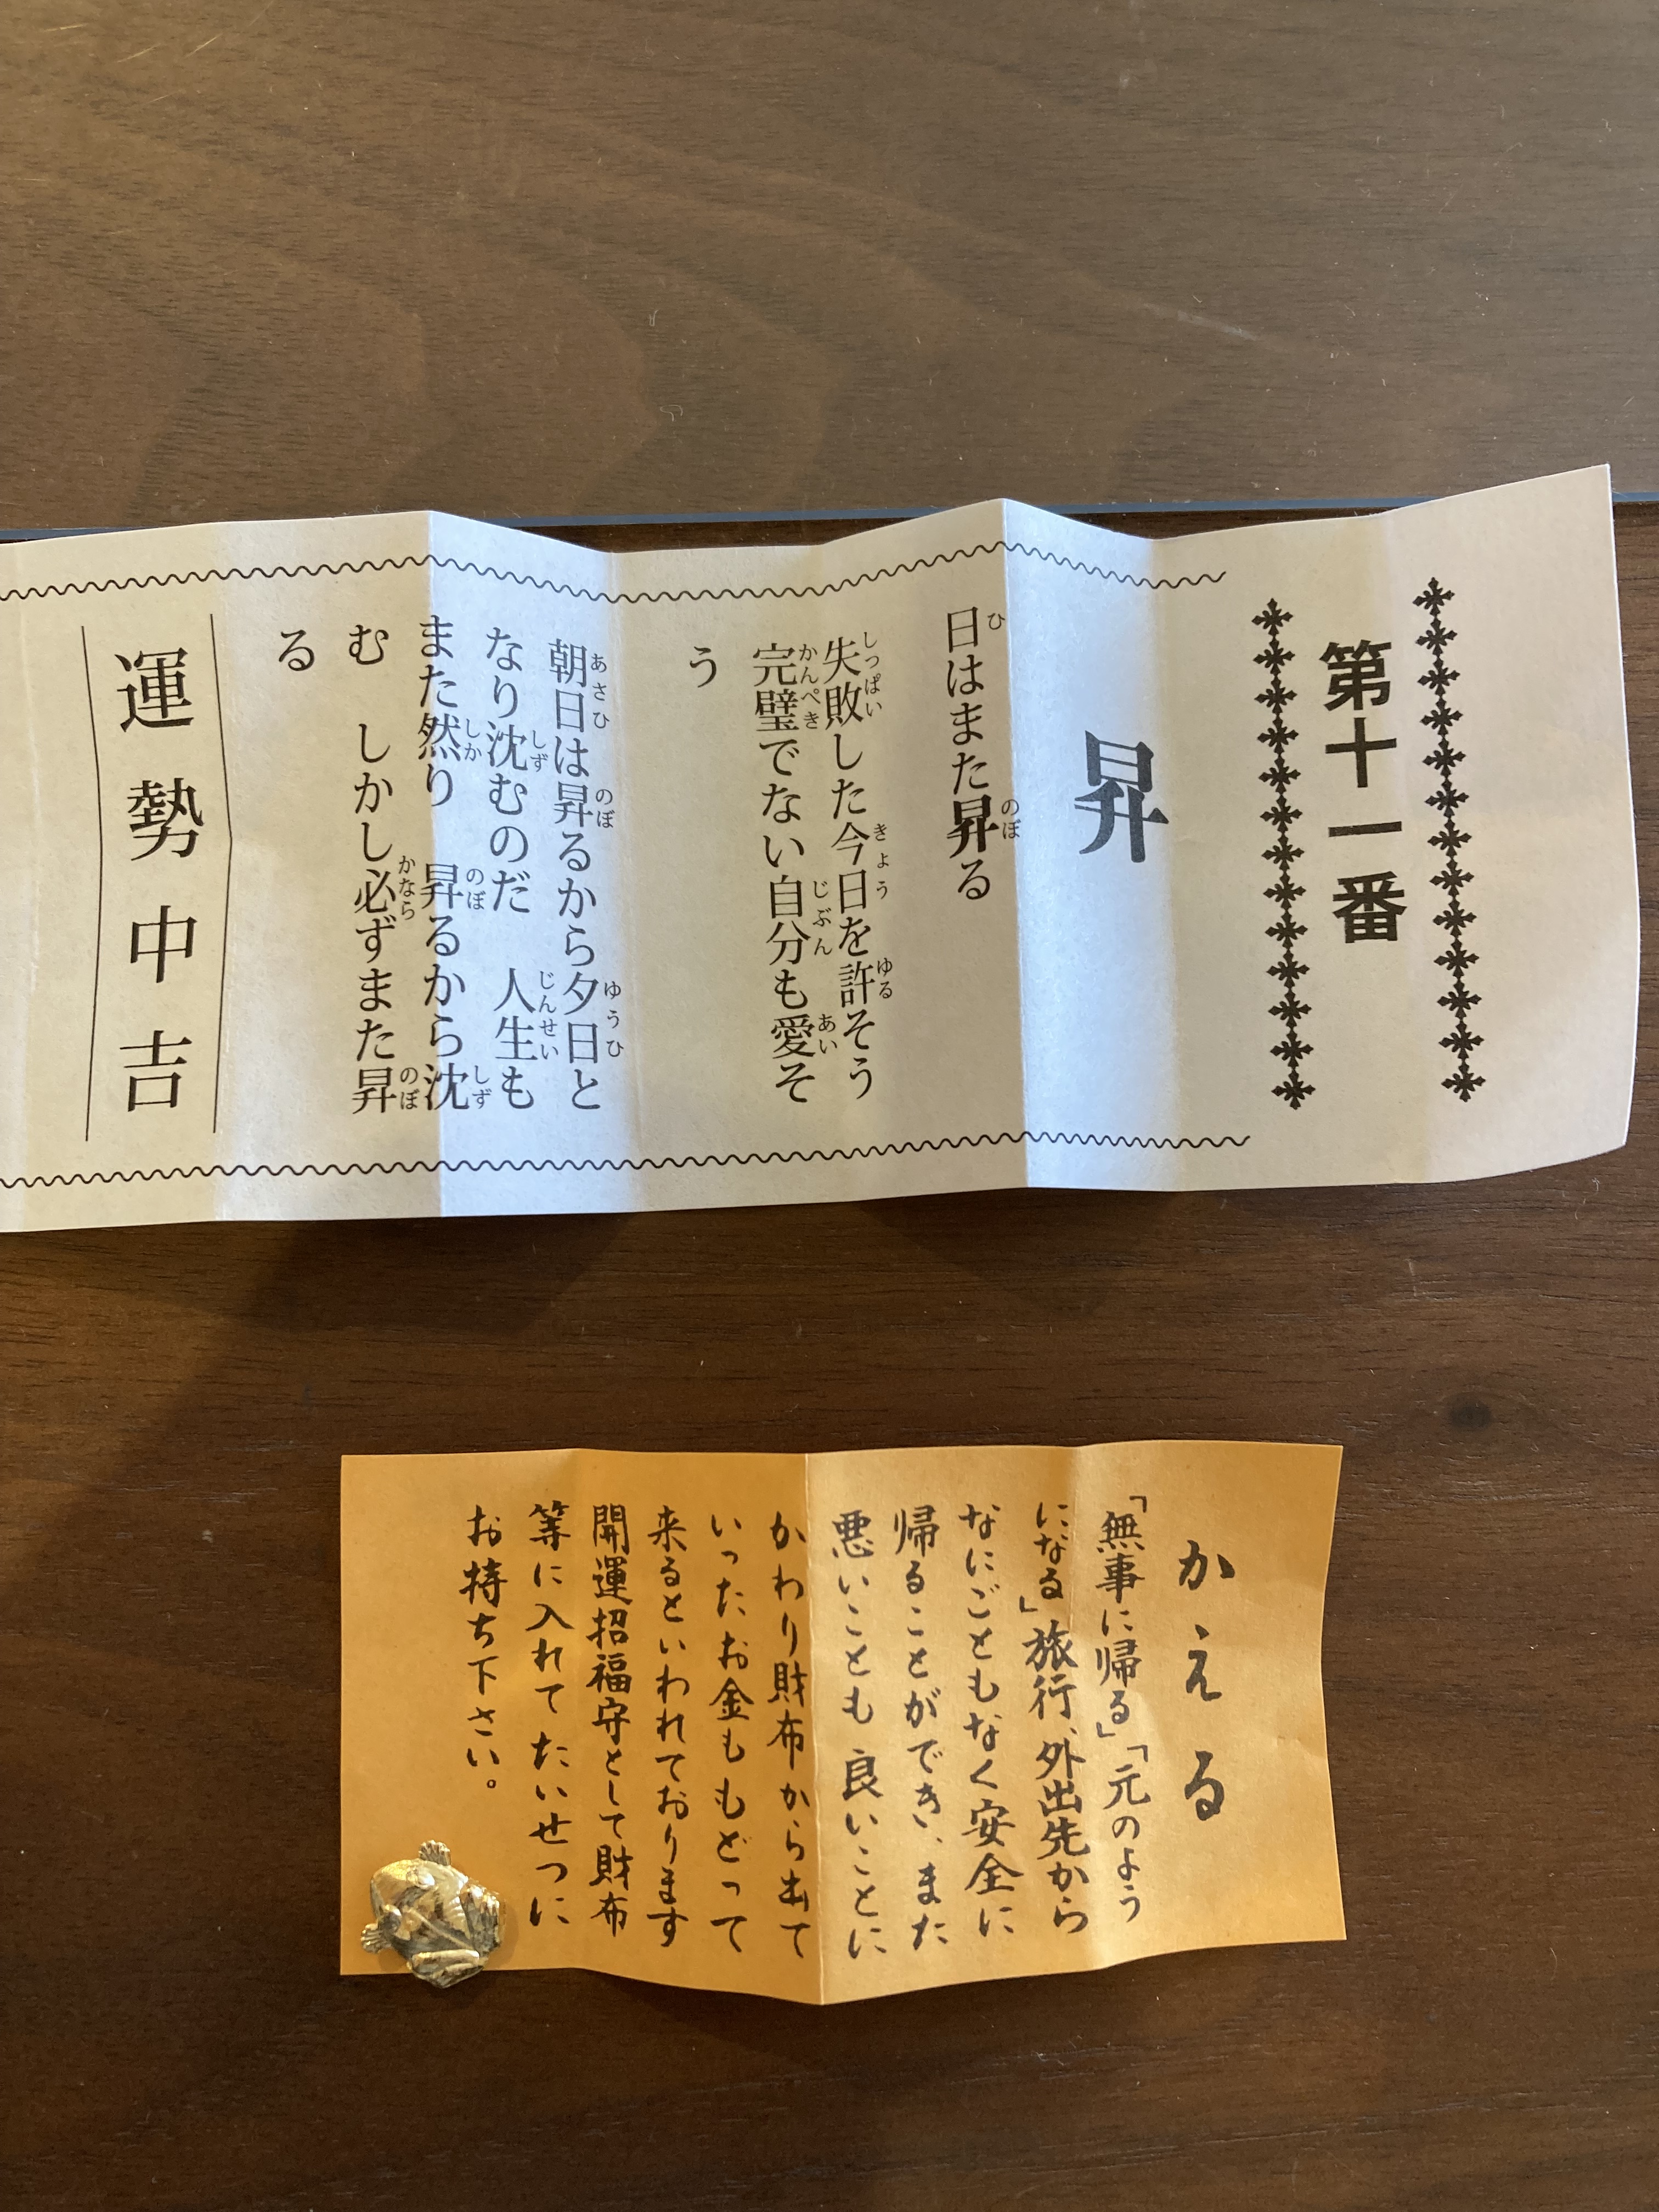 第十一番
昇
日はまた昇る
失敗した今日を許そう
完璧でない自分も愛そ
う
朝日は昇るから夕日と
なり沈むのだ　人生も
また然り　昇るから沈
む　しかし必ずまた昇
る
運勢中吉
かえる
「無事に帰る」「元のよう
になる」旅行、外出先から
なにごともなく安全に
帰ることができ、また
悪いことも良いことに
かわり財布から出て
いったお金ももどって
来るといわれております
開運招福守として財布
等に入れてたいせつに
お持ち下さい。